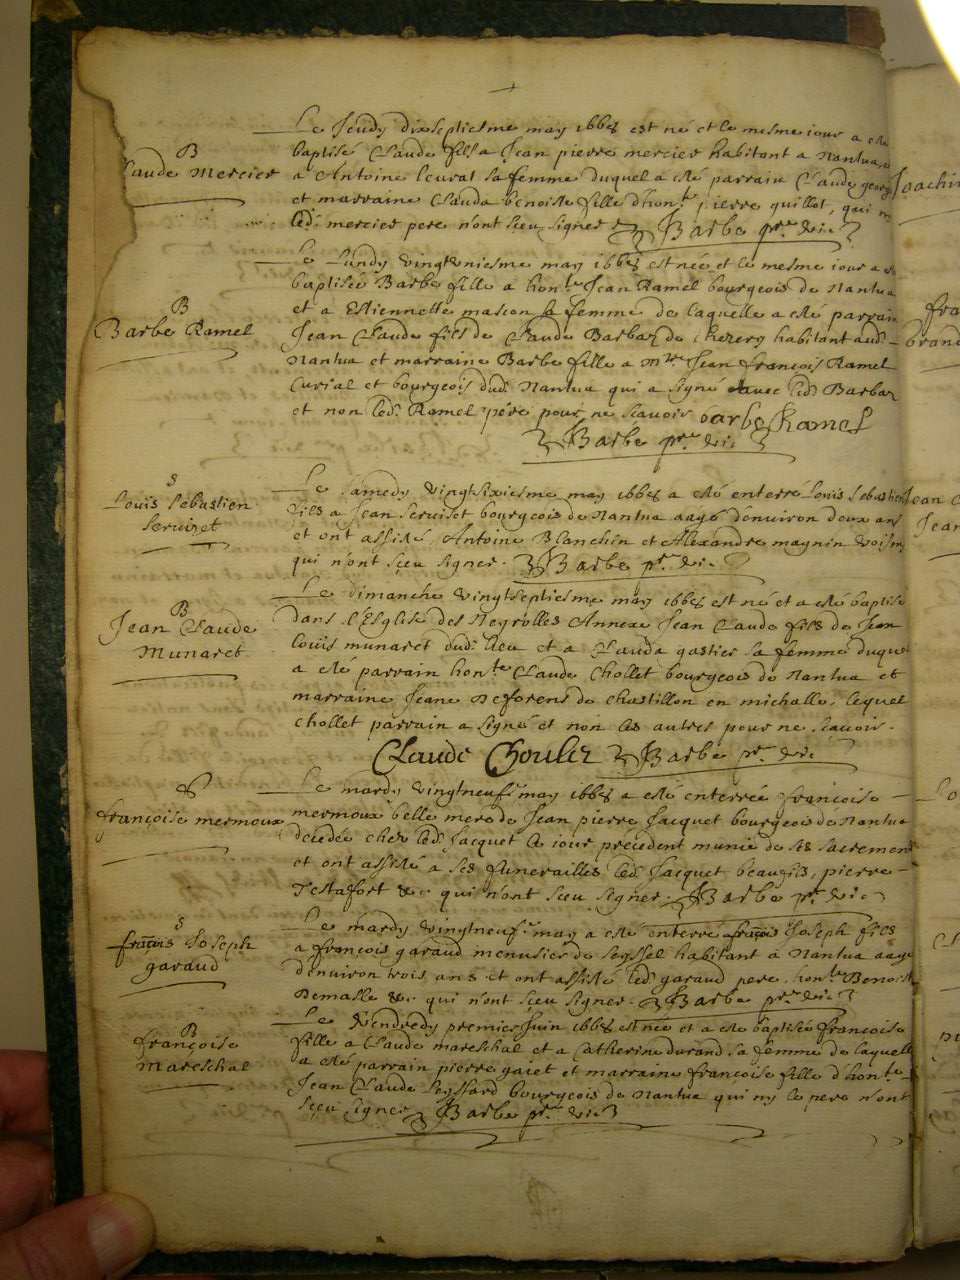 B
Claude Mercier
Le Jeudy dixseptiesme may 1668 est né et le mesme iour a esté
baptisé Claude fils a Jean pierre mercier habitant a Nantua
a Antoine leurat sa femme duquel a esté parrain Claude
et marraine Clauda benoiste fille d'hon.te pierre quillot, qui
led. mercier pere n'ont sçeu signer Barbe pr.re vic
B
Barbe Ramel
Le Lundy vingtvniesme may 1668 est née et le mesme iour a esté
baptisée Barbe fille a hon.te Jean Ramel bourgeois de Nantua
et a Estiennette mascon sa femme de laquelle a esté parrain
Jean Claude fils de Claude Barbaz de Chezery habitant aud.
Nantua et marraine Barbe fille a m.re Jean françois Ramel
Curial et bourgeois dud. Nantua qui a signé avec led. Barbaz
et non led. Ramel pére pour ne scavoir barbe Ramel
Barbe pr.re vic
S
Louis Sebastien
Seruiset
Le Samedy vingtsixiesme may 1668 a esté enterré Louis Sebastien
fils a Jean Seruiset bourgeois de Nantua aagé d'enuiron deux ans
et ont assisté Antoine Blanchin et Alexandre magnin voisins
qui n'ont sçeu signer. Barbe pr. vic
B
Jean Claude
Munaret
Le dimanche vingtseptiesme may 1668 est né et a esté baptisé
dans l'Eglise des Neyrolles Annexe Jean Claude fils de Jean
Louïs munaret dud. lieu et a Clauda gastier sa femme duquel
a esté parrain hon.te Claude Chollet bourgeois de Nantua et
marraine Jeane de Chastillon en michalle, lequel
chollet parrain a signé et non les autres pour ne sçauoir.
Claude Barbe pr. vic
S
françoise mermoux
Le mardy vingtneuf.e may 1668 a esté enterrée françoise
mermoux belle mere de Jean pierre Jacquet bourgeois de Nantua
decedée chez led. Jacquet le iour précedent munie de ses sacremens
et ont assisté a ses funerailles led. Jacquet beaufils, pierre
Testafort &c qui n'ont sçeu signer. Barbe pr. vic
S
françois Joseph
garaud
Le mardy vingtneuf.e may a esté enterré françois Joseph fils
a françois garaud menusier de seyssel habitant à Nantua aagé
d'enuiron trois ans et ont assisté led. garaud pere, hon.te Benoist
Demasle &c qui n'ont sçeu signer. Barbe pr.re vic
B
françoise
Mareschal
Le Vendredy premier Juin 1668 est née et a esté baptisée françoise
fille a Claude mareschal et a Catherine durand sa femme de laquelle
a esté parrain pierre gaiet et marraine françoise fille d'hon.te
Jean Claude Leyssard bourgeois de Nantua qui ny le pere n'ont
sçeu signer Barbe pr.re vic